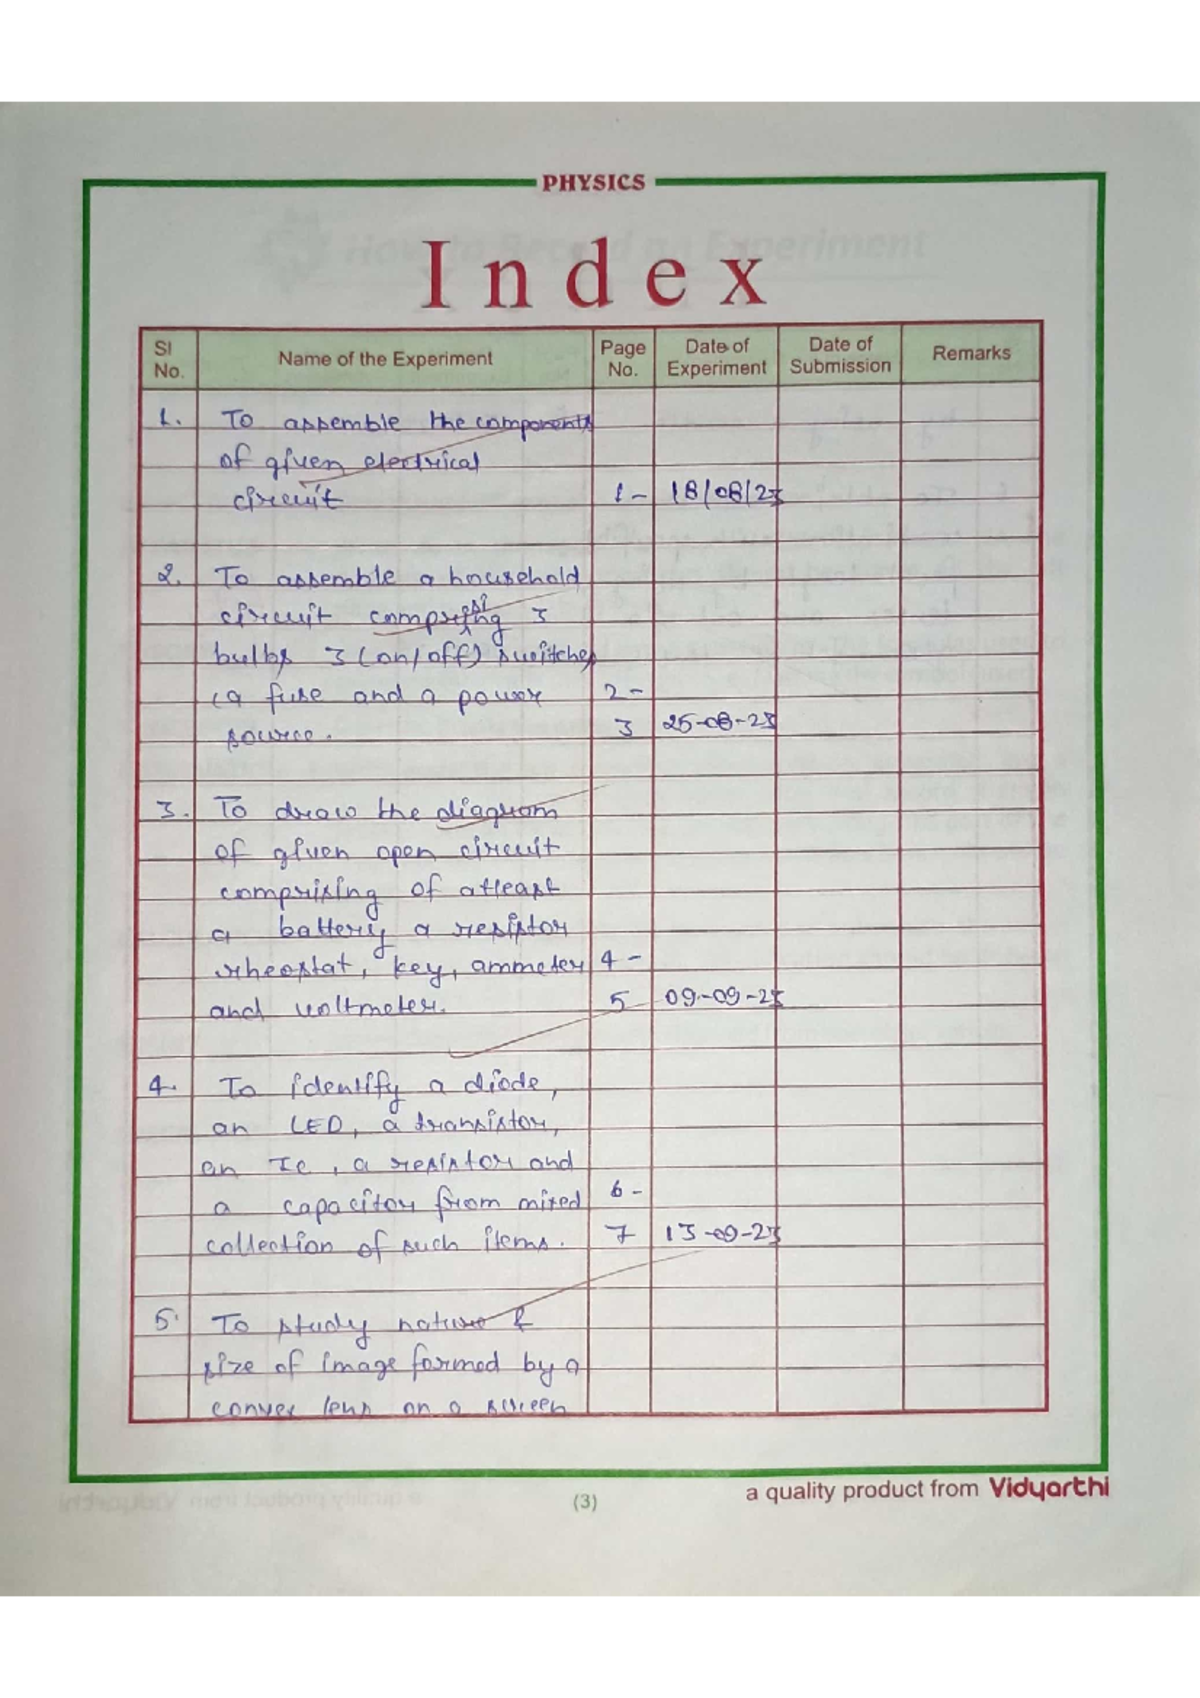 PHYSICS
Index
Sl No. Name of the Experiment Page No. Date of Experiment Date of Submission Remarks
1. To assemble the components
of given electrical
circuit 1- 18/08/23
2. To assemble a household
circuit comprising 3
bulbs 3 (on/off) switches
(a fuse and a power 2-
source. 3 25-08-23
3. To draw the diagram
of given open circuit
comprising of atleast
a battery a resistor
rheostat, key, ammeter 4-
and voltmeter. 5 09-09-23
4. To identify a diode,
an LED, a transistor,
an IC, a resistor and
a capacitor from mixed 6-
collection of such items. 7 13-09-23
5. To study nature &
size of image formed by a
convex lens on a screen
(3)
a quality product from Vidyarthi